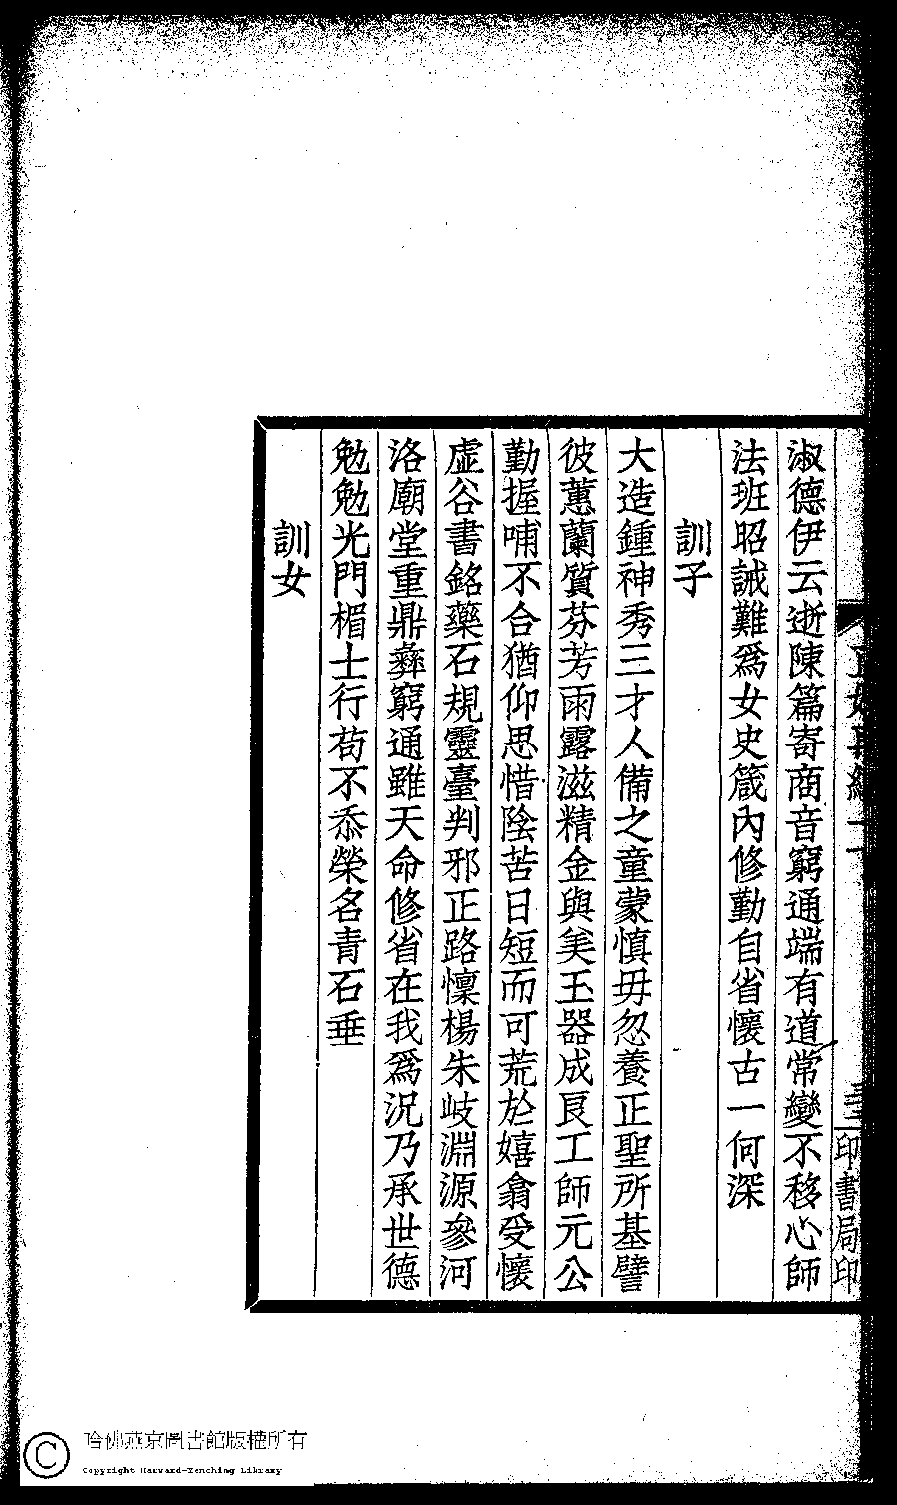 淑德伊云逝陳篇寄商音窮通端有道常變不移心師
法班昭誡難爲女史箴內修勤自省懷古一何深
訓子
大造鍾神秀三才人備之童蒙慎毋忽養正聖所基譬
彼蕙蘭質芬芳雨露滋精金與美玉器成良工師元公
勤握哺不合猶仰思惜陰苦日短而可荒於嬉翕受懷
虛谷書銘藥石規靈臺判邪正路懍楊朱岐淵源參河
洛廟堂重鼎彝窮通雖天命修省在我爲況乃承世德
勉勉光門楣士行苟不忝榮名青石垂
訓女
印書局印
哈佛燕京圖書館版權所有
Copyright Harvard-Yenching Library